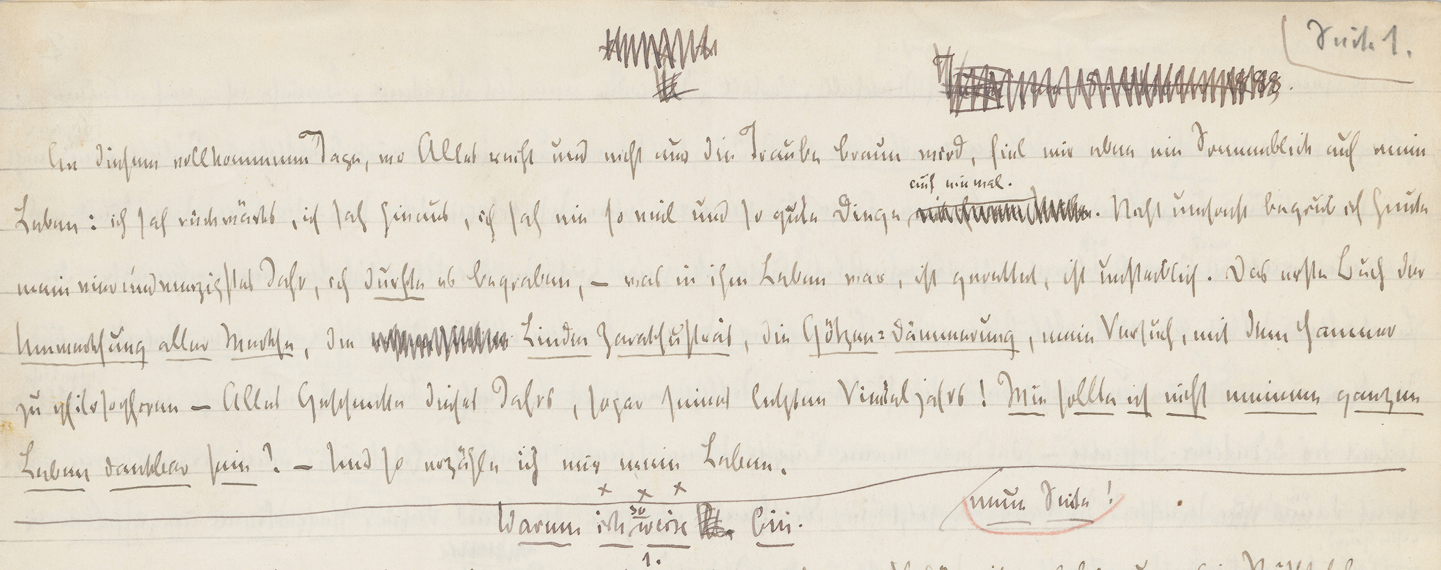 Seite 1.
An diesem vollkommnen Tage, wo Alles reift und nicht nur die Traube braun wird, fiel mir eben ein Sonnenblick auf mein
auf einmal.
Leben: ich sah rückwärts, ich sah hinaus, ich sah nie so viel und so gute Dinge. Nicht umsonst begrub ich heute
mein vierundvierzigstes Jahr, ich durfte es begraben, — was in ihm Leben war, ist gerettet, ist unsterblich. Das erste Buch der
Umwerthung aller Werthe, die Lieder Zarathustras, die Götzen=Dämmerung, mein Versuch, mit dem Hammer
zu philosophiren — Alles Geschenke dieses Jahrs, sogar seines letzten Vierteljahrs! Wie sollte ich nicht meinem ganzen
Leben dankbar sein? — Und so erzähle ich mir mein Leben.
neue Seite!
so
Warum ich weise bin.
1.